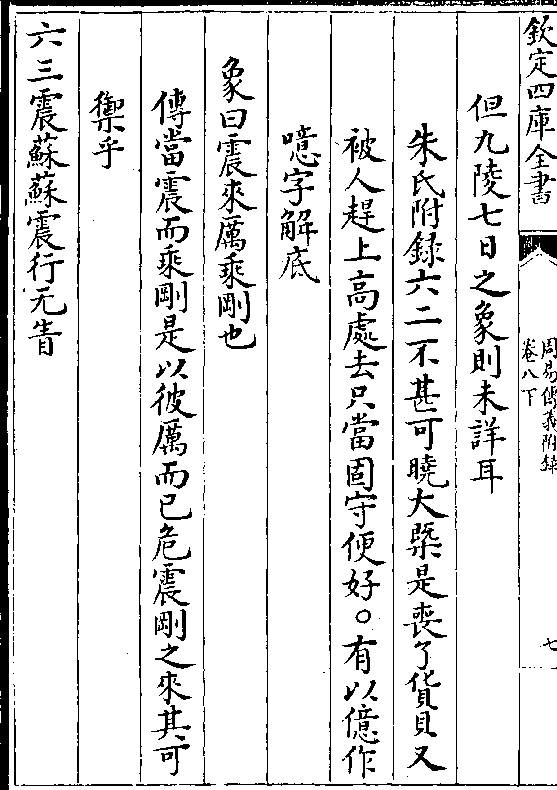 欽定四庫全書
周易傳義附録
卷八下
七
但九陵七日之象則未詳耳
朱氏附録六二不甚可曉大槩是喪了貨貝又
被人趕上高處去只當固守便好○有以億作
噫字解底
象曰震來厲乘剛也
傳當震而乘剛是以彼厲而已危震剛之來其可
禦乎
六三震蘇蘇震行无眚